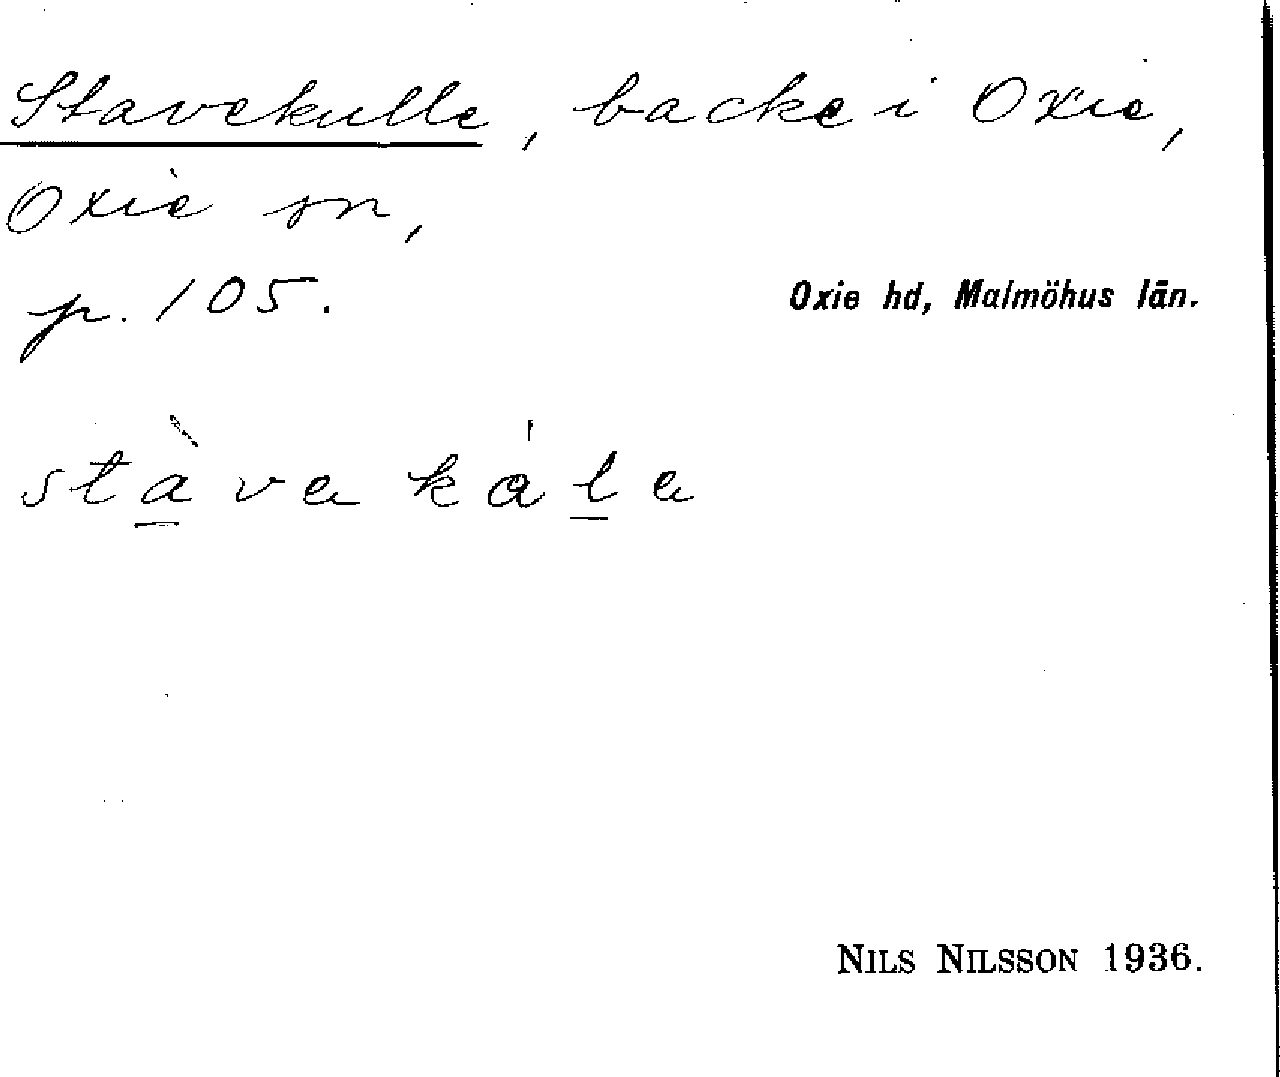 Stavekulle, backe i Oxie,
Oxie sn,
p. 105.
Oxie hd, Malmöhus län.
stàva kála
NILS NILSSON 1936.